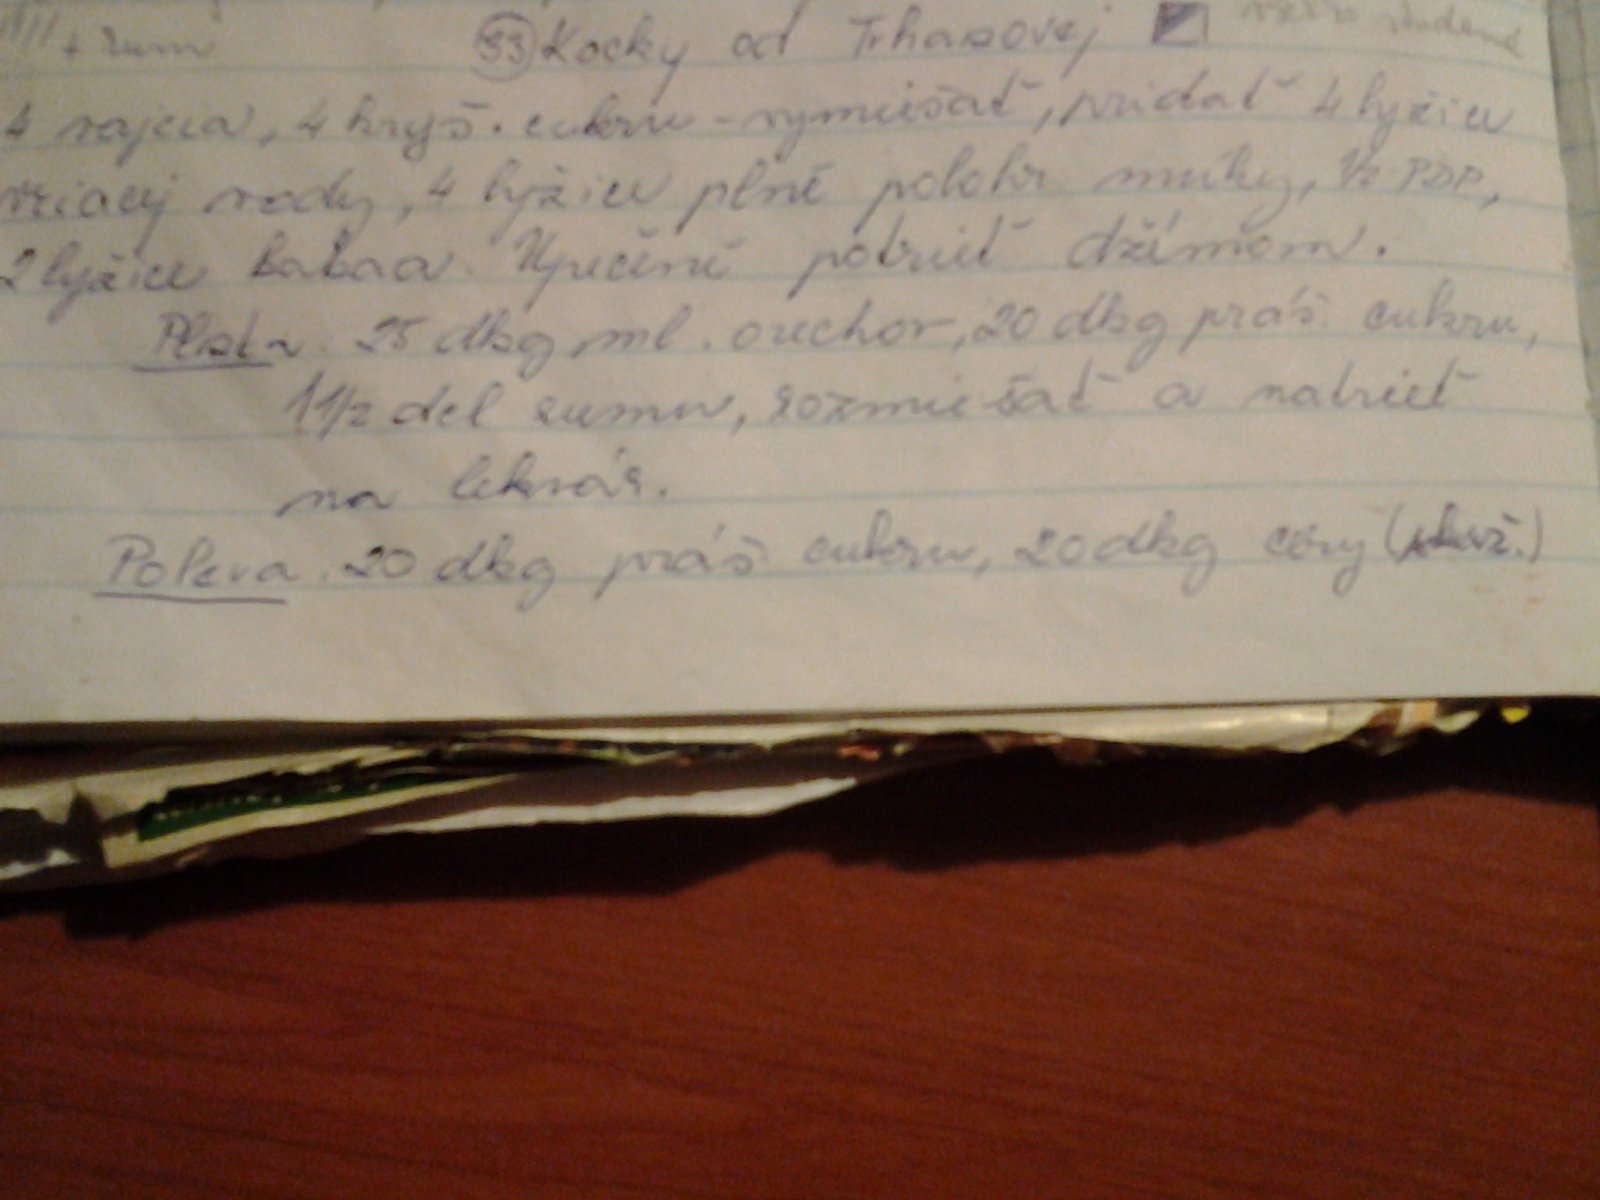 + rum
33 Kocky od Trhasovej
4 vajcia, 4 kryš. cukru - vymiešať, pridať 4 lyžice
vriacej vody, 4 lyžice plné polohr múky, 1/2 PDP,
2 lyžice kakaa. Upečené potrieť džémom.
Plsta: 25 dkg ml. orechov, 20 dkg práš. cukru,
1 1/2 del rumu, rozmiešať a natrieť
na lekvár.
Poleva: 20 dkg práš cukru, 20 dkg cery